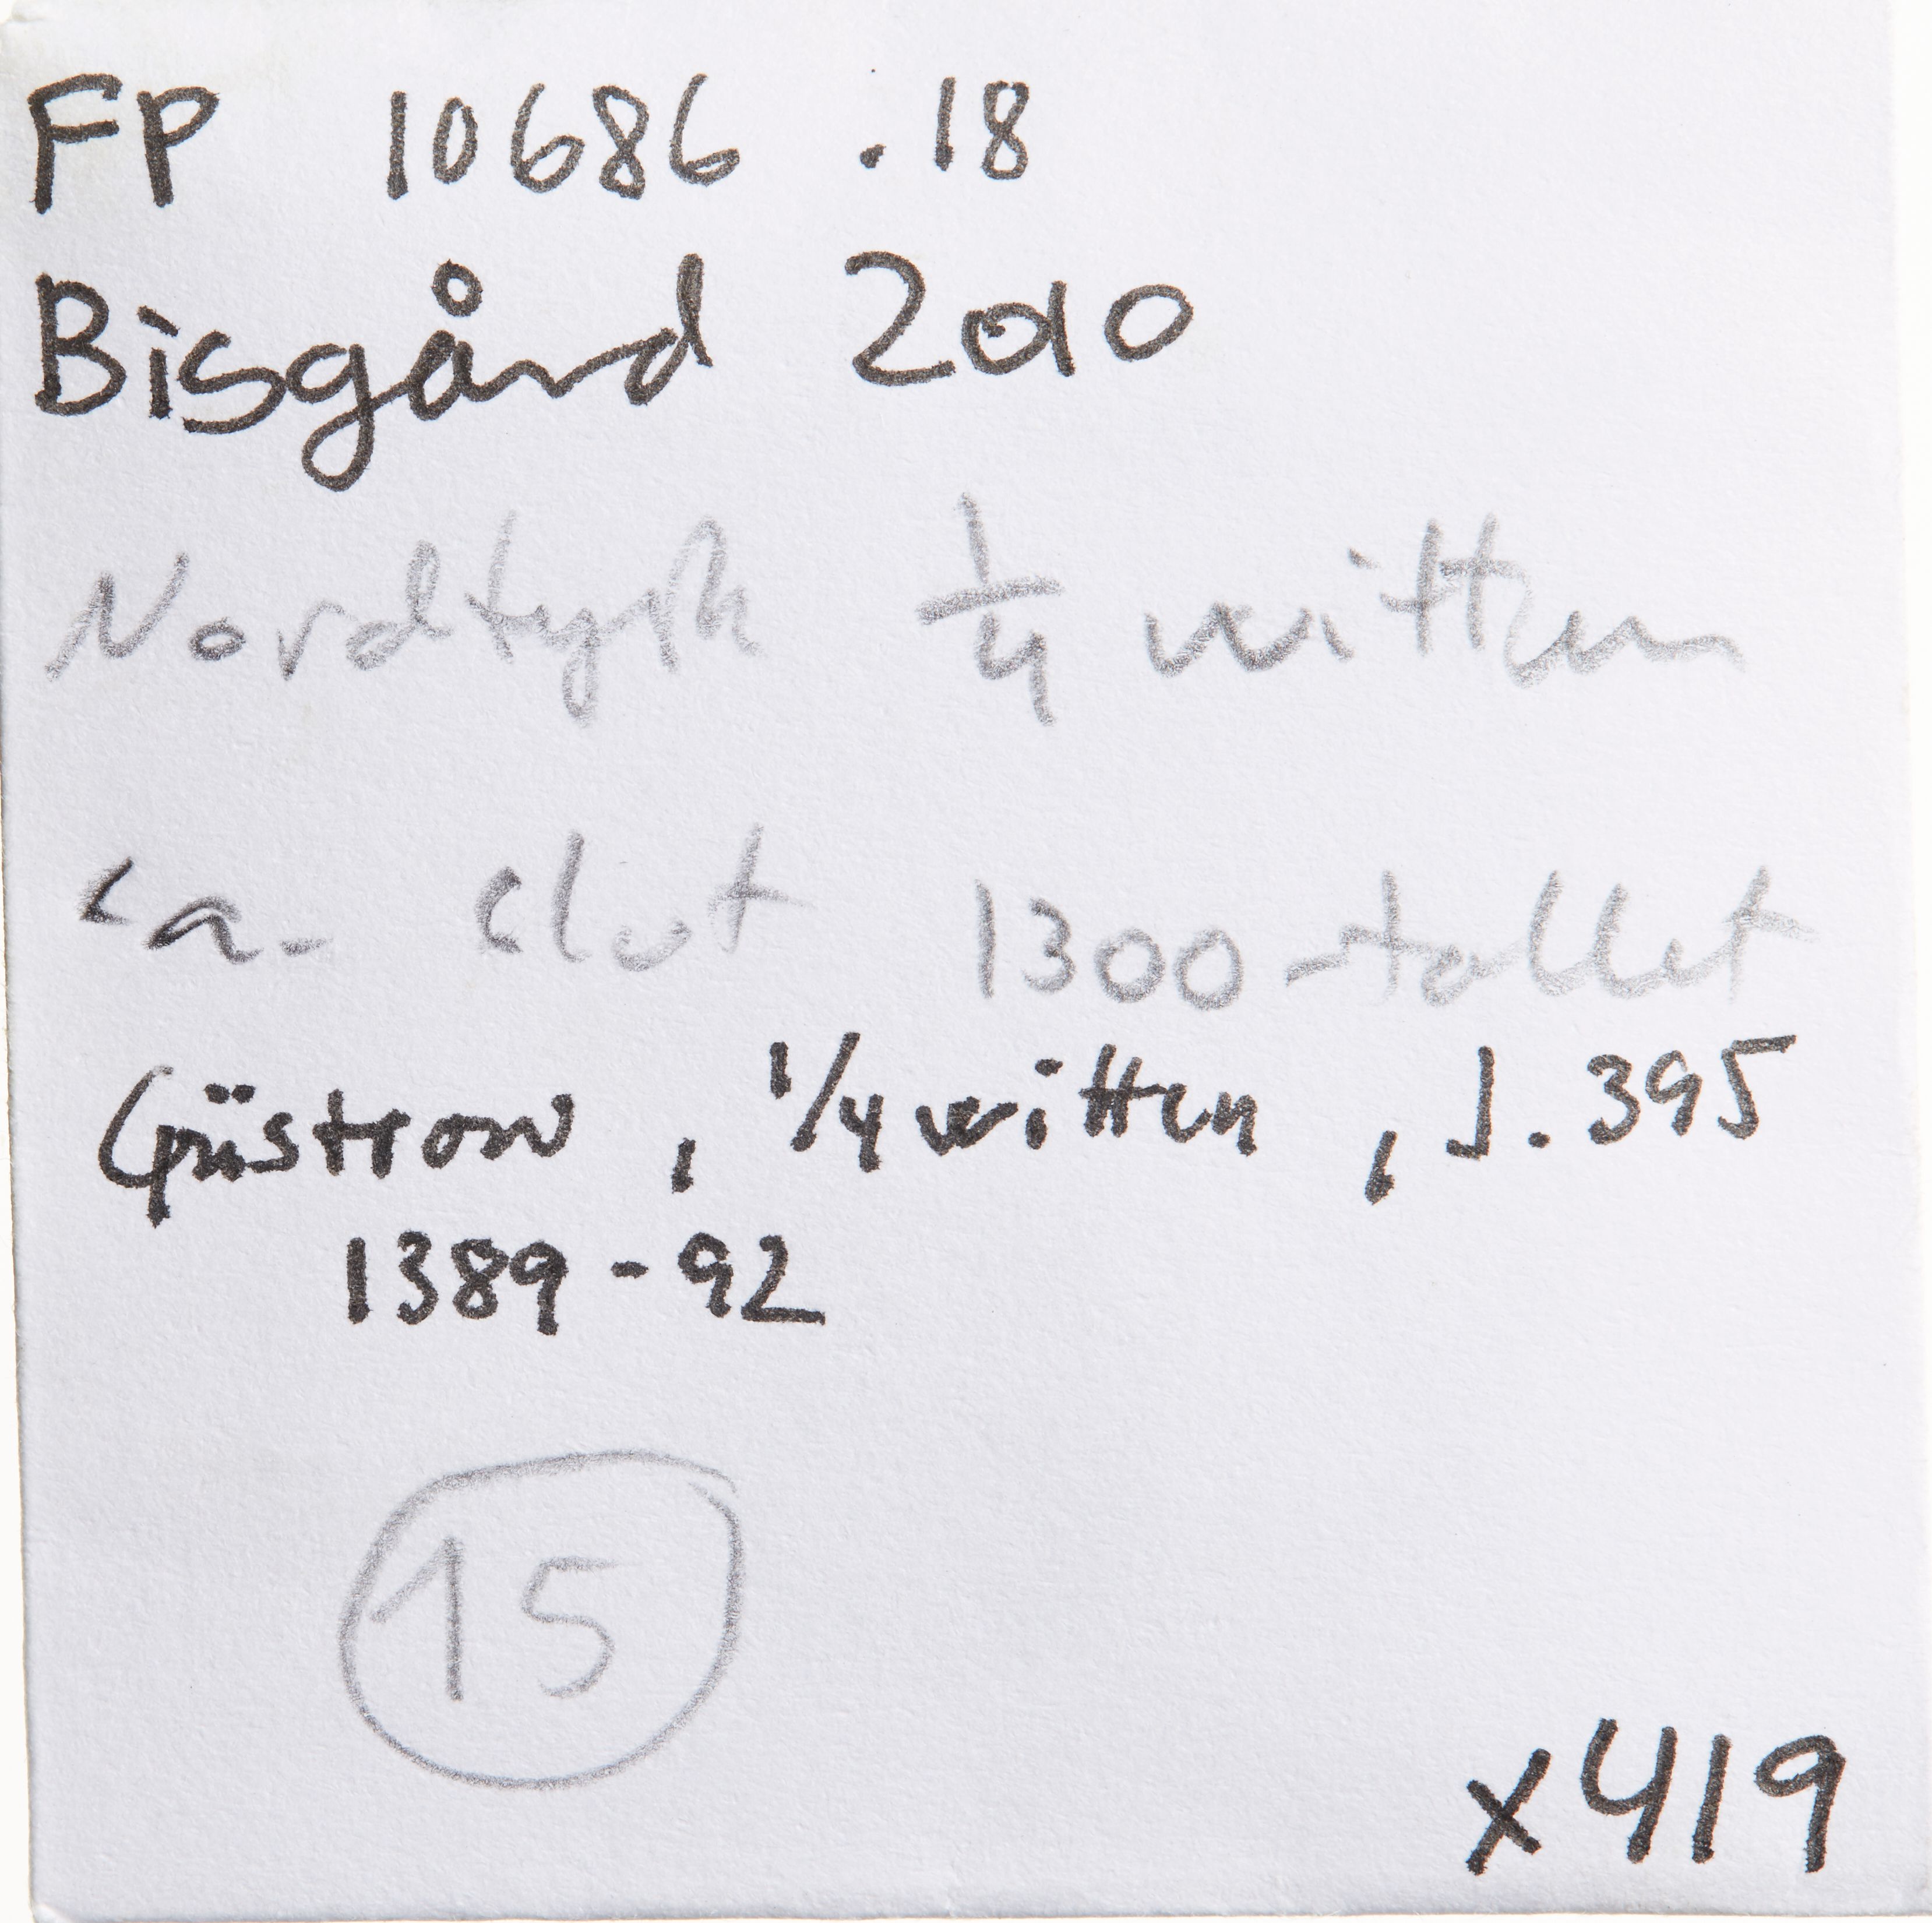 FP 10686 .18
Bisgård 2010
Nordtysk 1/4 witten
ca. slut 1300-tallet
Güstrow, 1/4 witten, J. 395
1389-92
15
x419